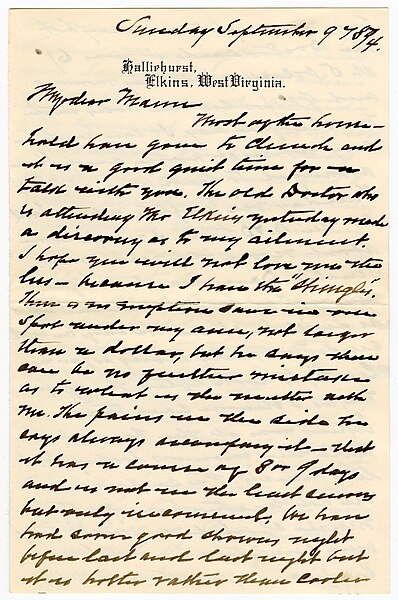 Sunday September 9th 94.
Halliehurst,
Elkins, West Virginia.
My dear Mame
Most of the house-
hold have gone to Church and
it is a good quiet time for a
talk with you. The old Doctor who
is attending Mr Elkins yesterday made
a discovery as to my ailment.
I hope you will not love me the
less - because I have the "Shingles".
There is no eruption save in one
spot under my arm, not larger
than a dollar, but he says there
can be no further mistake
as to what is the matter with
me. The pains in the side he
says always accompany it - that
it has a course of 8 or 9 days
and is not in the least serious
but only inconvenient. We have
had some good showers night
before last and last night but
it is hotter rather than cooler